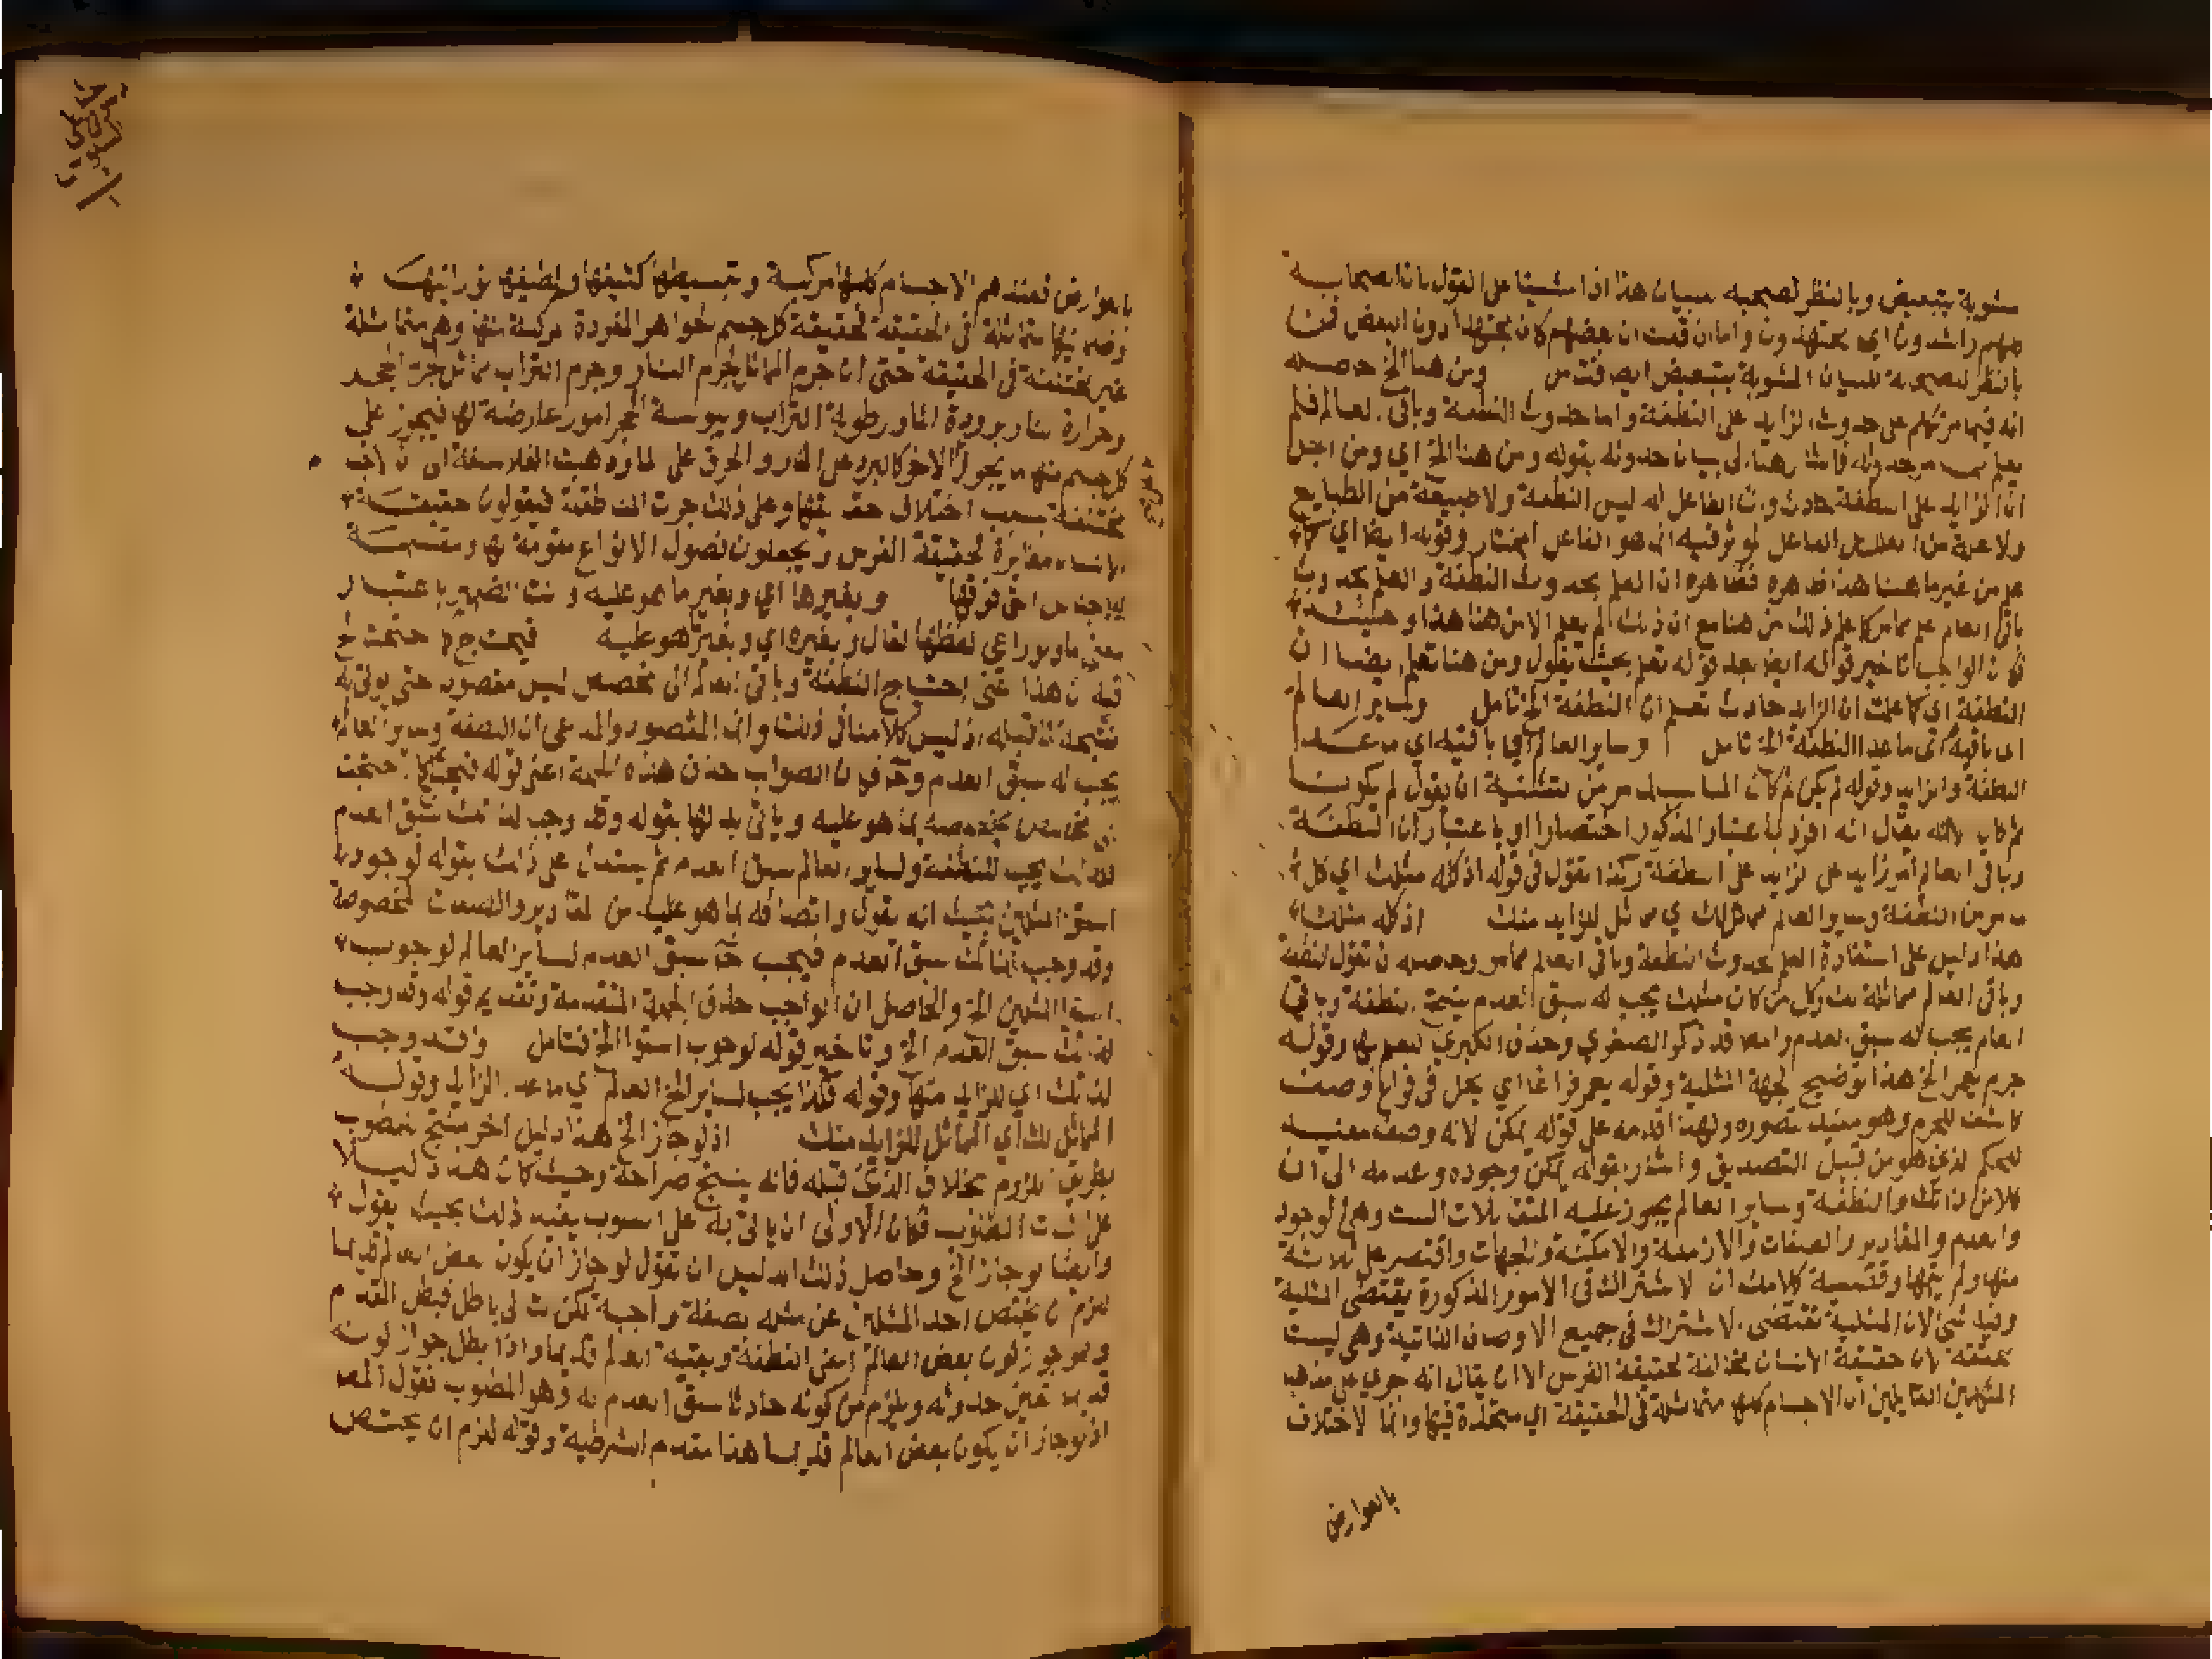 مشوبة بتبعيض وبالنظر لصحبه بيان هذا ان مشينا على القول بان الصحابة
كلهم راشدون اي مجتهدون واما ان قلت ان بعضهم كان مجتهدا دون البعض فمن
بالنظر للصحابة للبيان المشوبة بتبعيض ومن هنا الخ حاصله
انه فيما مر تكلم على حدوث الزايد على النطفة واما حدوث النطفة وباقي العالم فلم
يعلم مما مر حدوثه فاشار هنا الى بيان حدوثه بقوله ومن هنا الخ اي ومن اجل
ان الزايد على النطفة حادث وان الفاعل له ليس النطفة ولا طبيعة من الطبايع
ولا علة من العلل بل الفاعل المؤثر فيه انما هو الفاعل المختار وقوله ايضا اي كما
علم من غير ما هنا هذا ظاهره فظاهره ان العلم بحدوث النطفة والعلم بحدوث
باقي العالم علم مما مر كما علم ذلك من هنا مع ان ذلك لم يعلم الا من هنا هذا وحينئذ
فكان الواجب تاخير قوله ايضا بعد قوله تعلم بحيث يقول ومن هنا تعلم ايضا ان
النطفة اي كما علمت ان الزايد حادث تعلم ان النطفة الخ تامل وساير العالم
اي باقيه اي ما عدا النطفة الخ تامل وساير العالم اي باقيه اي ما عدا
النطفة والزايد وقوله لم يكن ثم كان المناسب لما مر من التثنية ان يقول لم يكونا
ثم كانا لانه يقال انه افرد باعتبار المذكور اختصارا او باعتبار ان النطفة
وباقي العالم امر زايد على الزايد على النطفة وكذا يقول في قوله اذ كله مثلك اي كل
ما مر من النطفة وساير العالم مماثل لك اي مماثل للزايد منك اذ كله مثلك
هذا دليل على استفادة العلم بحدوث النطفة وباقي العالم مما مر وحاصله ان تقول النطفة
وباقي العالم مماثلة لك وكل من كان مثلك يجب له سبق العدم ينتج النطفة وباقي
العالم يجب له سبق العدم وانما قد ذكر الصغرى وحذف الكبرى للعلم بها وقوله
جرم يعمر الخ هذا توضيح لجهة المثلية وقوله يعمر فراغا اي يحل في فراغ وصف
كاشف للجرم وهو مفيد تصوره ولهذا قدمه على قوله يمكن لانه وصف مفيد
للحكم الذي هو من قبيل التصديق واشار بقوله يمكن وجوده وعدمه الى ان
كلا من ذاتك والنطفة وساير العالم يجوز عليه المتقابلات الست وهي الوجود
والعدم والمقادير والصفات والازمنة والامكنة والجهات واقتصر على ثلاثة
منها ولم يتمها وقضية كلامه ان الاشتراك في الامور المذكورة يقتضي المثلية
وفيه شي لان المثلية تقتضي الاشتراك في جميع الاوصاف الذاتية وهي ليست
لان حقيقة الانسان مخالفة لحقيقة الفرس الا ان يقال انه جرى على مذهب
المتكلمين القايلين ان الاجسام كلها متماثلة في الحقيقة اي متحدة فيها وانما الاختلاف
بالعوارض
بالعوارض فعندهم الاجسام كلها مركبة وبسيطها كثيفها ولطيفها نورانيها
متماثلة في الحقيقة لحقيقة كل جسم الجواهر المفردة مركبة منها وهي متماثلة
غير مختلفة في الحقيقة حتى ان جرم الماء مماثل لجرم النار وجرم التراب مماثل لجرم الحجر
وحرارة النار وبرودة الماء ورطوبة التراب ويبوسة الحجر امور عارضة لها فيجوز على
كل جسم منها ما يجوز على الاخر كالبرد على النار والحرق على الماء وذهبت الفلاسفة الى ان الاجسام
مختلفة بسبب اختلاف حقايقها وعلى ذلك جرت المناطقة فيقولون حقيقة
الانسان مغايرة لحقيقة الفرس ويجعلون فصول الانواع مقومة لها ومقسمة
للاجناس التي فوقها وبغيرها اي وبغير ما هو عليه وانث الضمير باعتبار
معنى ما ولو راعى لفظها لقال وبغيره اي وبغير ما هو عليه فيحتاج كما احتجت الخ
فيه ان هذا اعني احتياج النطفة وباقي العالم الى مخصص ليس مقصود حتى يؤتى به
نتيجة لما قبله اذ ليس كلامنا في ذلك وانما المقصود والمدعى ان النطفة وساير العالم
يجب له سبق العدم وحينئذ فكان الصواب حذف هذه الجملة اعني قوله فيحتاج كما احتجت
الى مخصص يخصصه بما هو عليه وياتي بدلها بقوله وقد وجب لذاتك سبق العدم
لذاتك يجب للنطفة ولساير العالم سبق العدم ثم يستدل على ذلك بقوله لوجوب
استواء المثلين بحيث انه يقول واتصافه بما هو عليه من المقادير والصفات المخصوصة
وقد وجب لذاتك سبق العدم فيجب حينئذ سبق العدم لساير العالم لوجوب
استواء المثلين الخ والحاصل ان الواجب حذف الجملة المتقدمة وتقديم قوله وقد وجب
لذاتك سبق العدم الخ وتاخير قوله لوجوب استواء الخ فتامل وقد وجب
لذاتك اي للزايد منها وقوله فلذا يجب لساير الخ العالم اي ما عدا الزايد وقوله
المماثل لك اي المماثل للزايد منك اذ لو جاز الخ هذا دليل اخر ينتج المطلوب
بطريق اللزوم بخلاف الذي قبله فانه ينتج صراحة وحيث كان هذا دليلا
على اثبات المطلوب فكان الاولى ان ياتي به على اسلوب يفيد ذلك بحيث يقول
وايضا لو جاز الخ وحاصل ذلك الدليل ان تقول لو جاز ان يكون بعض العالم قديما
للزم ان يختص احد المثلين عن مثله بصفة واجبة لكن التالي باطل فبطل المقدم
وهو جواز كون بعض العالم اعني النطفة وبقية العالم قديما واذا بطل جواز كونه
قديما تعين حدوثه ويلزم من كونه حادثا سبق العدم له وهو المطلوب فقول المص
اذ لو جاز ان يكون بعض العالم قديما هنا مقدم الشرطية وقوله للزم ان يختص